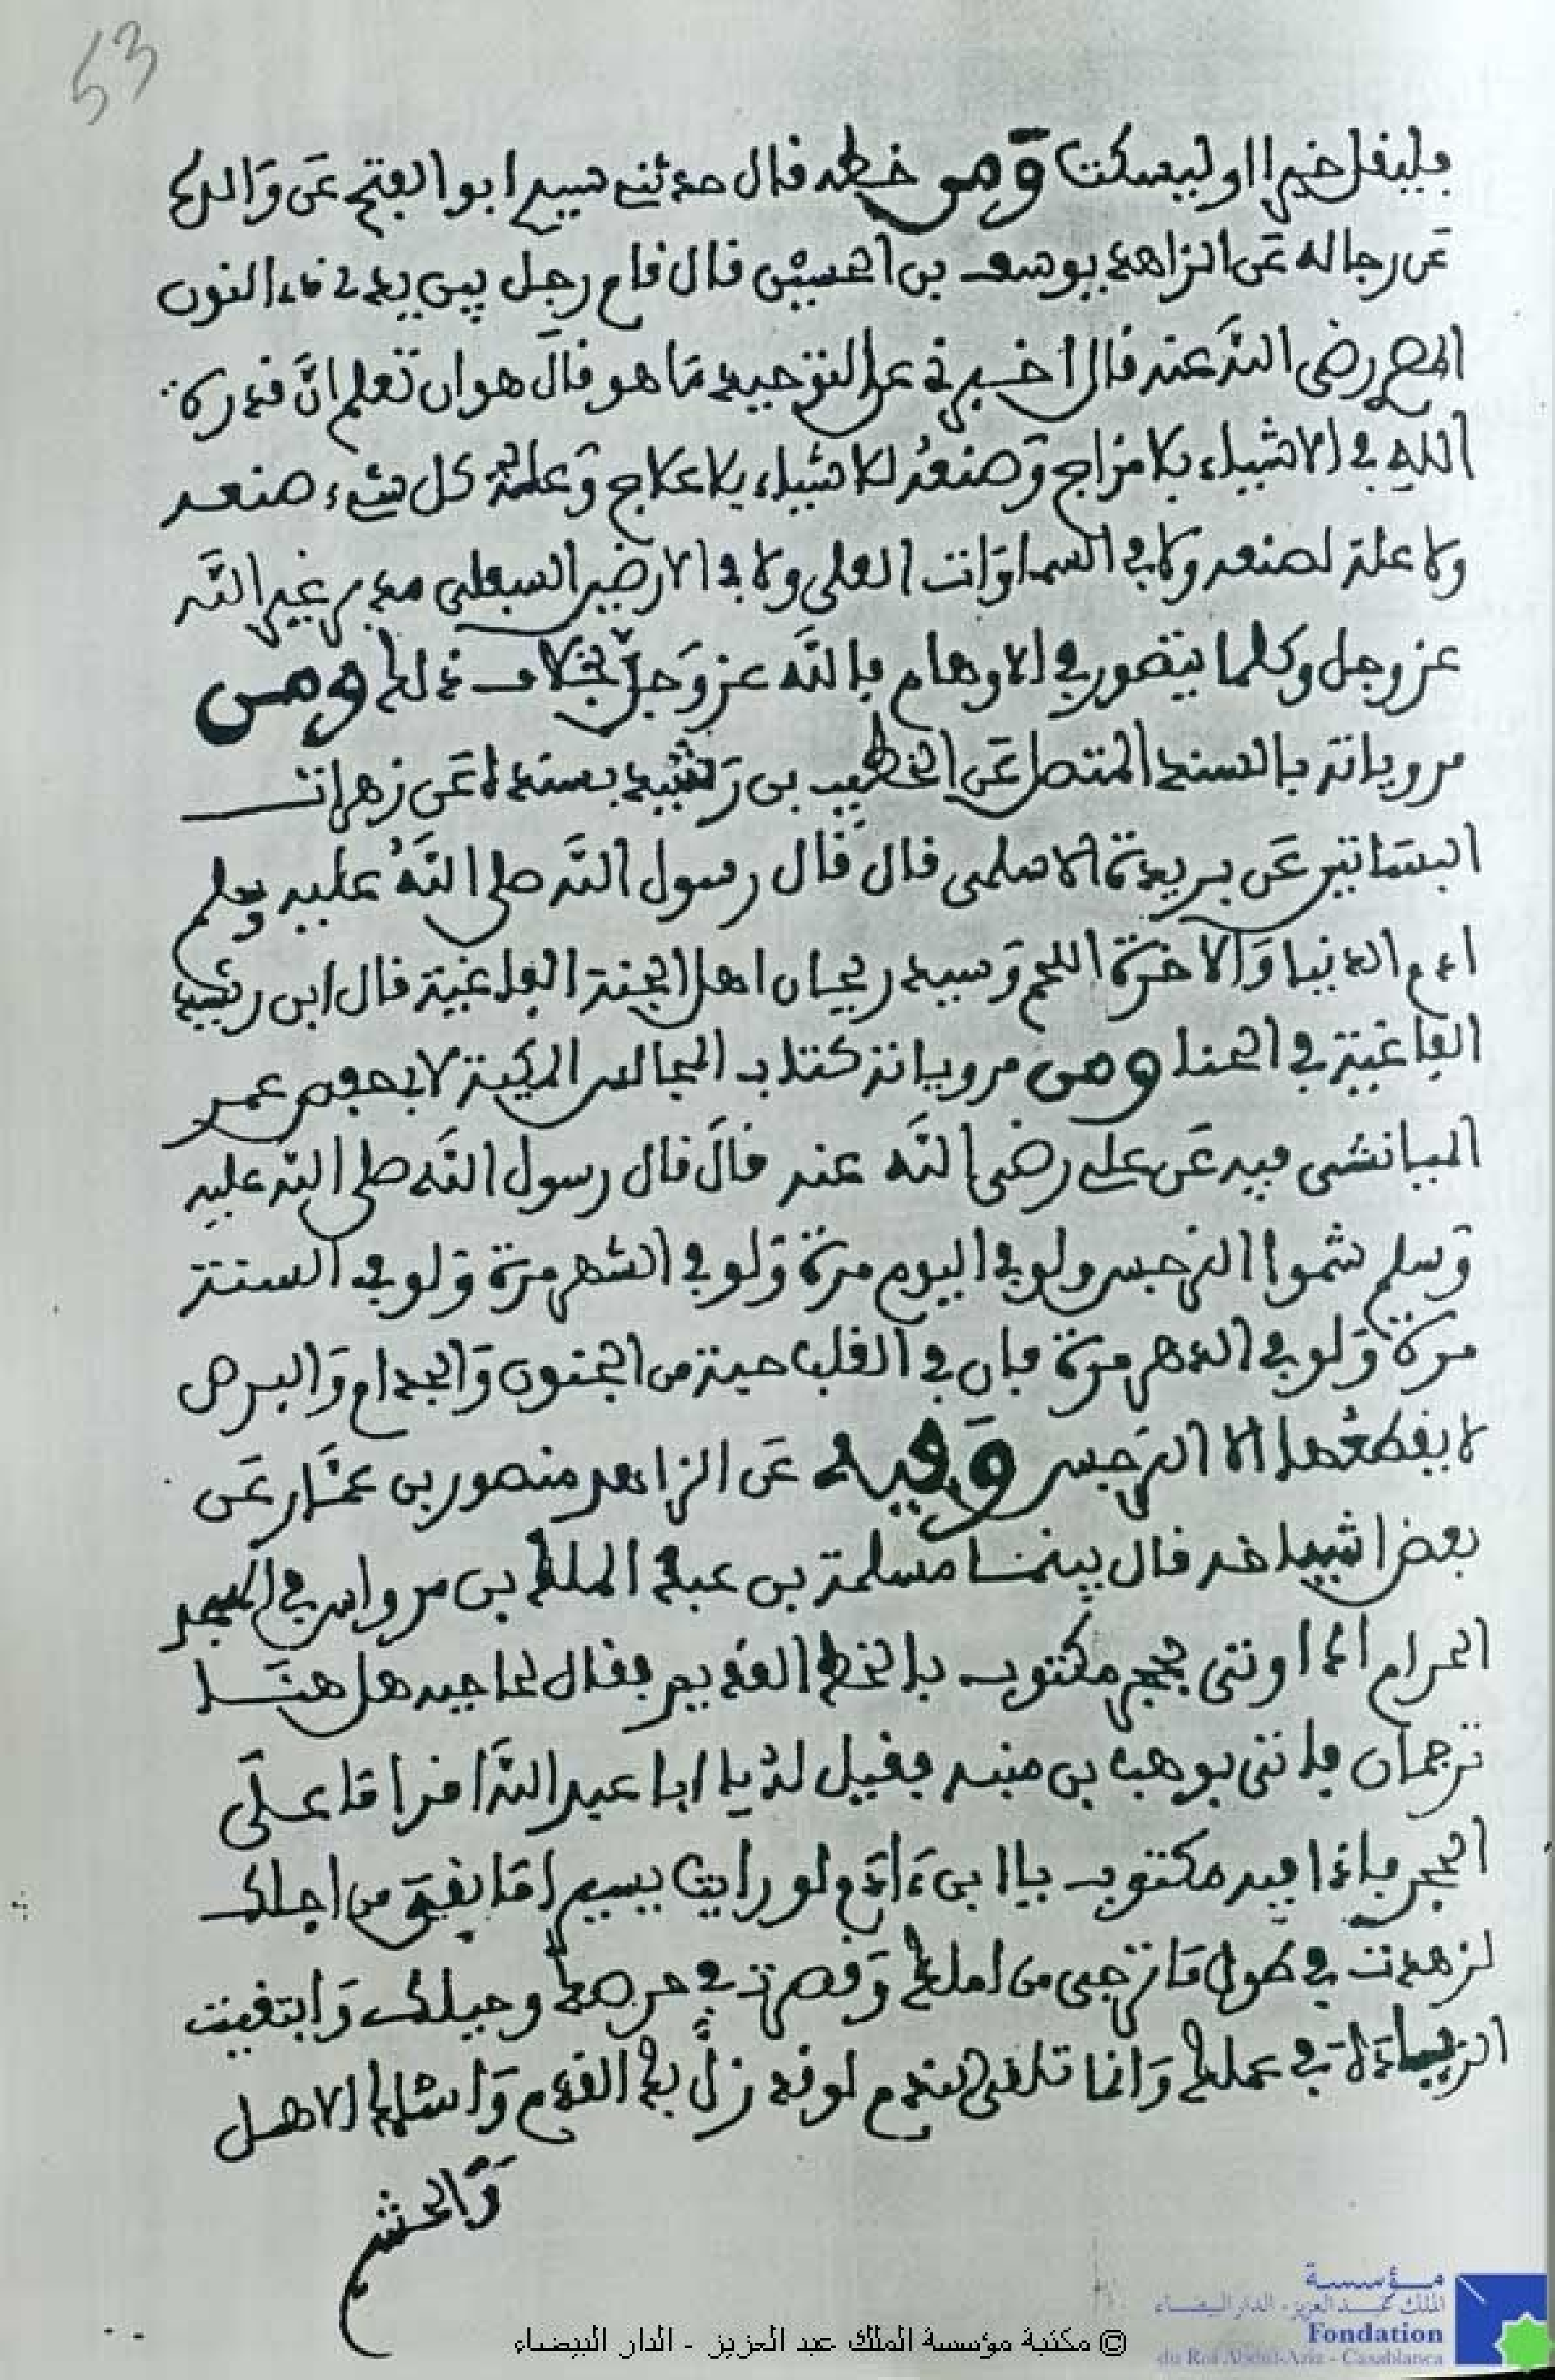 53
فليقل خيرا او ليسكت وَمن خطه قال حدثني سيدي ابو الفتح عَن وَالده
عَن رجاله عَن الزاهد يوسف بن الحسين قال قام رجل بين يدي ذي النون
المصري رضي اللَّه عنه قال أخبرني عن التوحيد مَا هو فالَ هو ان تَعلم انَّ قدرة
اللهِ في الاشياء بلا مزاج وَصنعهُ للاشياء بلا علاج وَعلة كل شيء صنعه
ولا علة لصنعه ولا في السماوَات العلى ولا في الارضين السفلى مدبر غير اللَّه
عز وجل وكلما يتصور في الاوهام فاللَّه عز وَجلّ بخلاف ذلك ومن
مروياته بالسند المتصل عَن الخطيب بن رَشيد بسنده عَن زهرات
البسَاتين عَن بريدة الاسلمي قال قَال رسول اللَّه صلى اللَّهُ عليه وسلم
ادم الدنيا وَالآخرَة اللحم وَسيد ريحان اهل الجنة الفاغية قال ابن رشيد
الفاغية في الحنا ومن مروياته كتاب المجالس المكية لابي حفص عمر
الميانشي فيه عَن علي رضي اللَّه عنه قالَ قال رسول اللَّه صلى اللَّه عليه
وَسلم شموا النرجس ولو في اليوم مرة وَلو في الشهر مرَة وَلو في السنة
مرة وَلو في الدهر مرَة فان في القلب حبة من الجنون وَالجذام وَالبرص
لا يقطعُها الا النرجس وَفيه عَن الزاهد منصور بن عمَّار عَن
بعض اشياخه قال بينمَا مَسلمة بن عبد الملك بن مروان في المسجد
الحرام اذ اوتي بحجر مكتوب بالخط القديم فقال لصاحبه هل هنَا
ترجمان فاتي بوهب بن منبه فقيل لهُ يا ابا عبد اللَّه اقرا مَا علَى
الحجر فاذا فيه مكتوب يا ابن ءَادَم لو رايت يسير مَا بقي من اجلك
لزهدت في طول مَا ترجى من املك وَقصرت في حرصك وحيلك وَابتغيت
الزيَادَة في عملك وَانما تلقى الندم لو قد زلَّ بك القدم وَاسلمك الاهل
وَالحشم
© مكتبة مؤسسة الملك عبد العزيز - الدار البيضاء
مؤسسة
الملك عبد العزيز - الدار البيضاء
Fondation
du Roi Abdul-Aziz - Casablanca